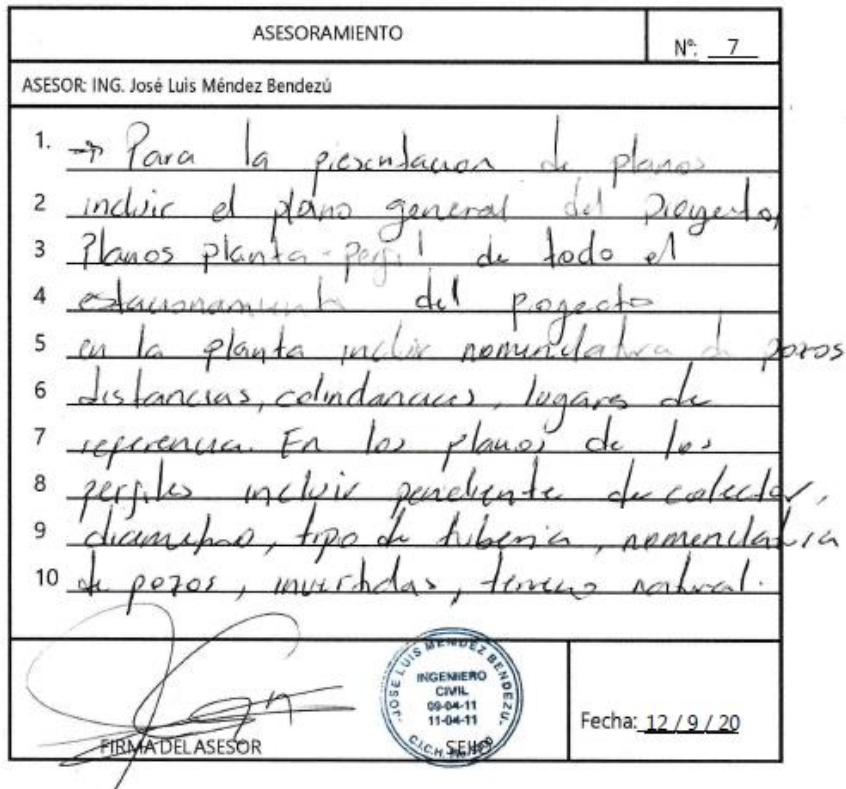 ASESORAMIENTO
Nº: 7
ASESOR: ING. José Luis Méndez Bendezú
1. → Para la presentacion de planos
2 incluir el plano general del proyecto,
3 Planos planta-perfil de todo el
4 estacionamiento del poyecto
5 en la planta incluir nomenclatura de pozos
6 distancias, colindancias, lugares de
7 referencia. En los planos de los
8 perfiles incluir pendiente de colector,
9 diametro, tipo de tuberia, nomenclatura
10 de pozos, invertidas, terreno natural.
JOSE LUIS MENDEZ BENDEZU
INGENIERO
CIVIL
09-04-11
11-04-11
C.I.C.H.
FIRMA DEL ASESOR
SELLO
Fecha: 12 / 9 / 20